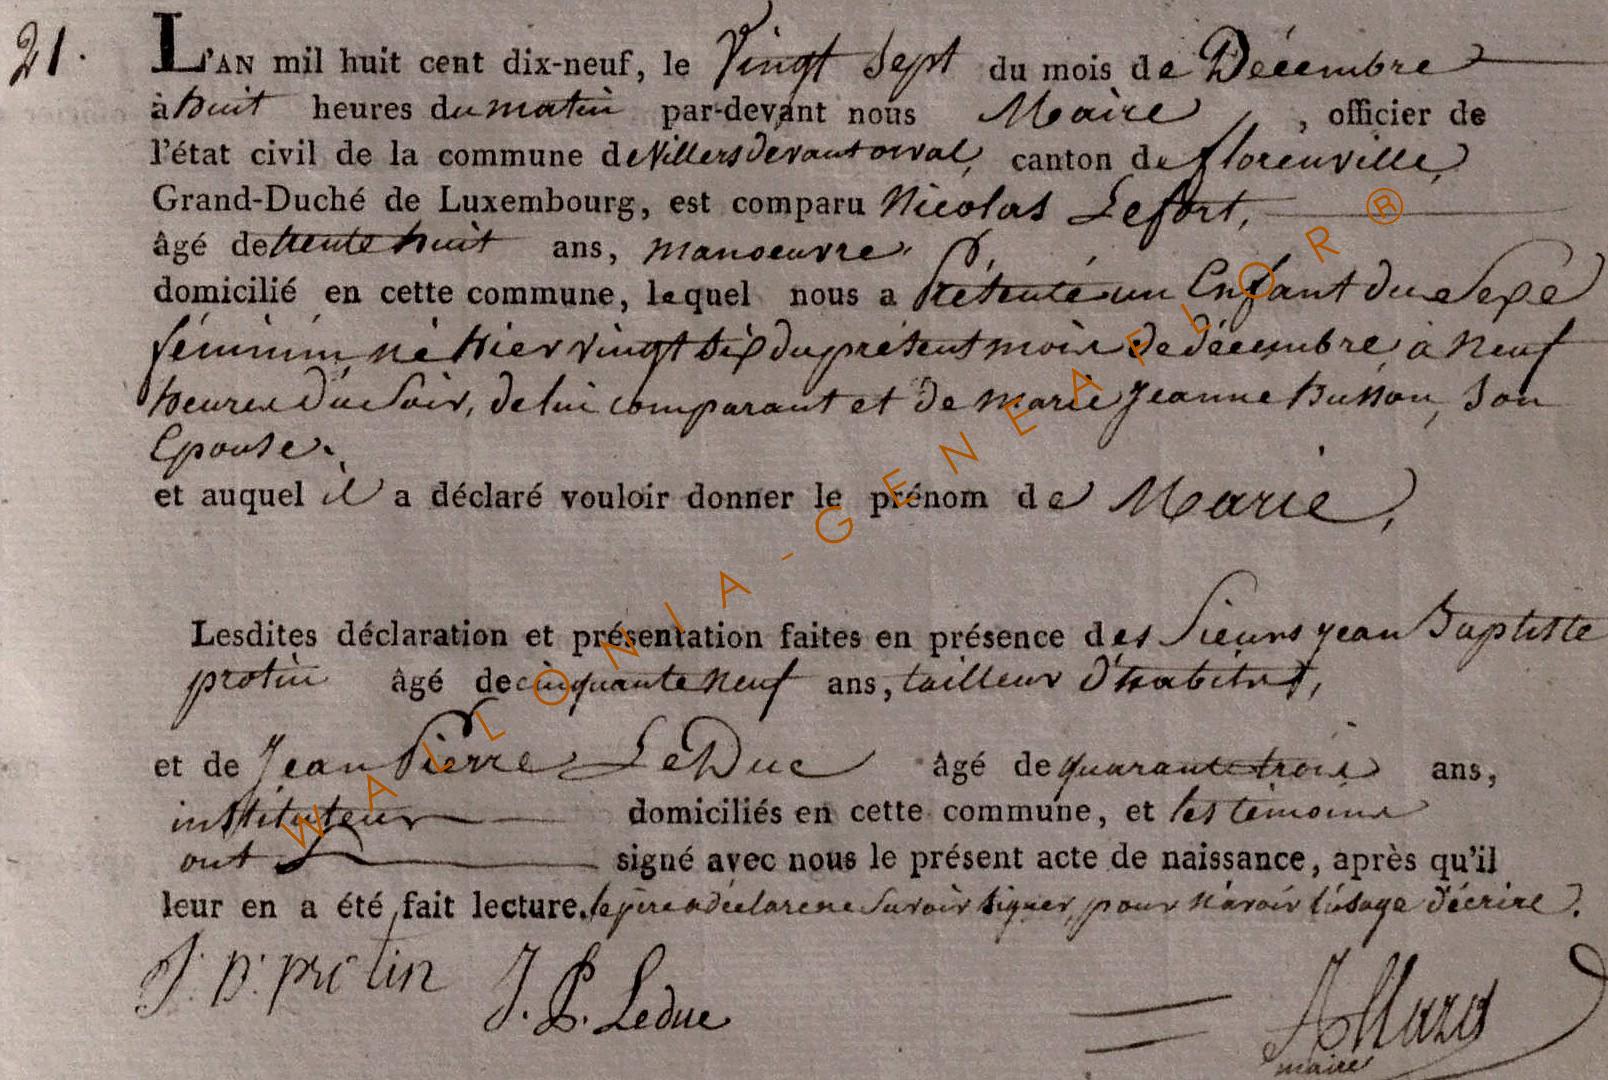 21.
L'AN mil huit cent dix-neuf, le Vingt Sept du mois de Décembre
à huit heures du matin par-devant nous Maire, officier de
l'état civil de la commune de Villers devant orval, canton de florenville,
Grand-Duché de Luxembourg, est comparu Nicolas Lefort,
âgé de trente huit ans, manoeuvre,
domicilié en cette commune, lequel nous a Présenté un Enfant du Sexe
féminin, né hier vingt Six du présent mois de décembre à neuf
heures du Soir, de lui comparant et de marie jeanne husson, Son
Epouse.
et auquel il a déclaré vouloir donner le prénom de Marie,
Lesdites déclaration et présentation faites en présence des Sieurs jean Baptiste
protin âgé de cinquante neuf ans, tailleur d'habits,
et de Jean Pierre LeDuc âgé de quarante trois ans,
instituteur domiciliés en cette commune, et les témoins
ont signé avec nous le présent acte de naissance, après qu'il
leur en a été fait lecture. le père a déclaré ne Savoir Signer, pour n'avoir l'usage d'écrire.
J. B. protin J. P. Leduc
maire
WALLONIA-GENEAFLOR®